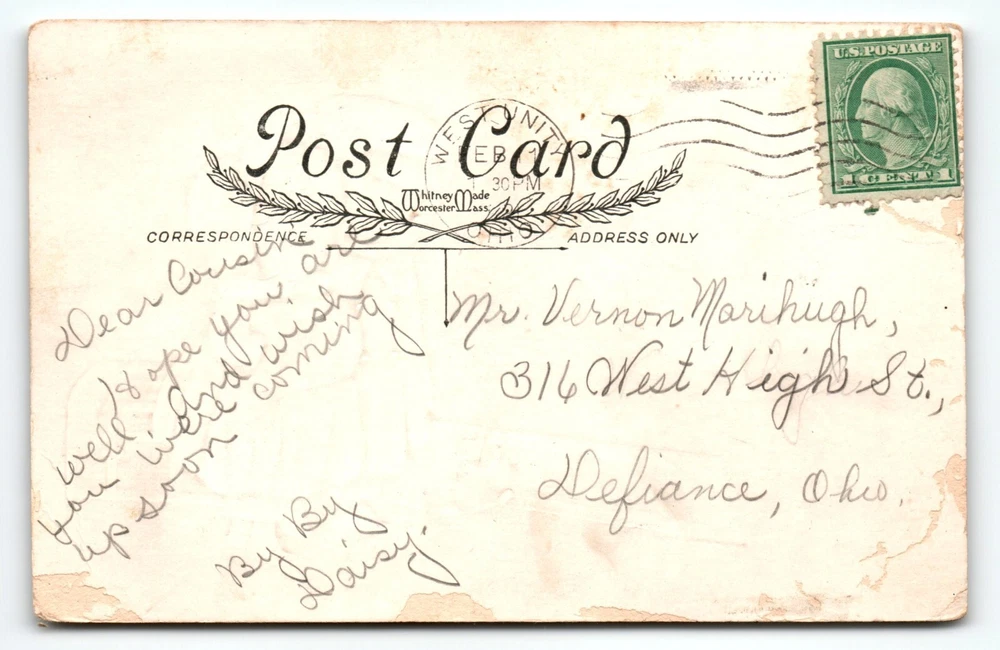 U.S. POSTAGE
1 CENTS 1
WEST UNITY
FEB 14
30 PM
OHIO
Post Card
Whitney Made
Worcester Mass.
CORRESPONDENCE
ADDRESS ONLY
Dear Cousin
Hope you are
well. And wish
you were coming
up soon
By By
Daisy.
Mr. Vernon Marihugh,
316 West High St.,
Defiance, Ohio.